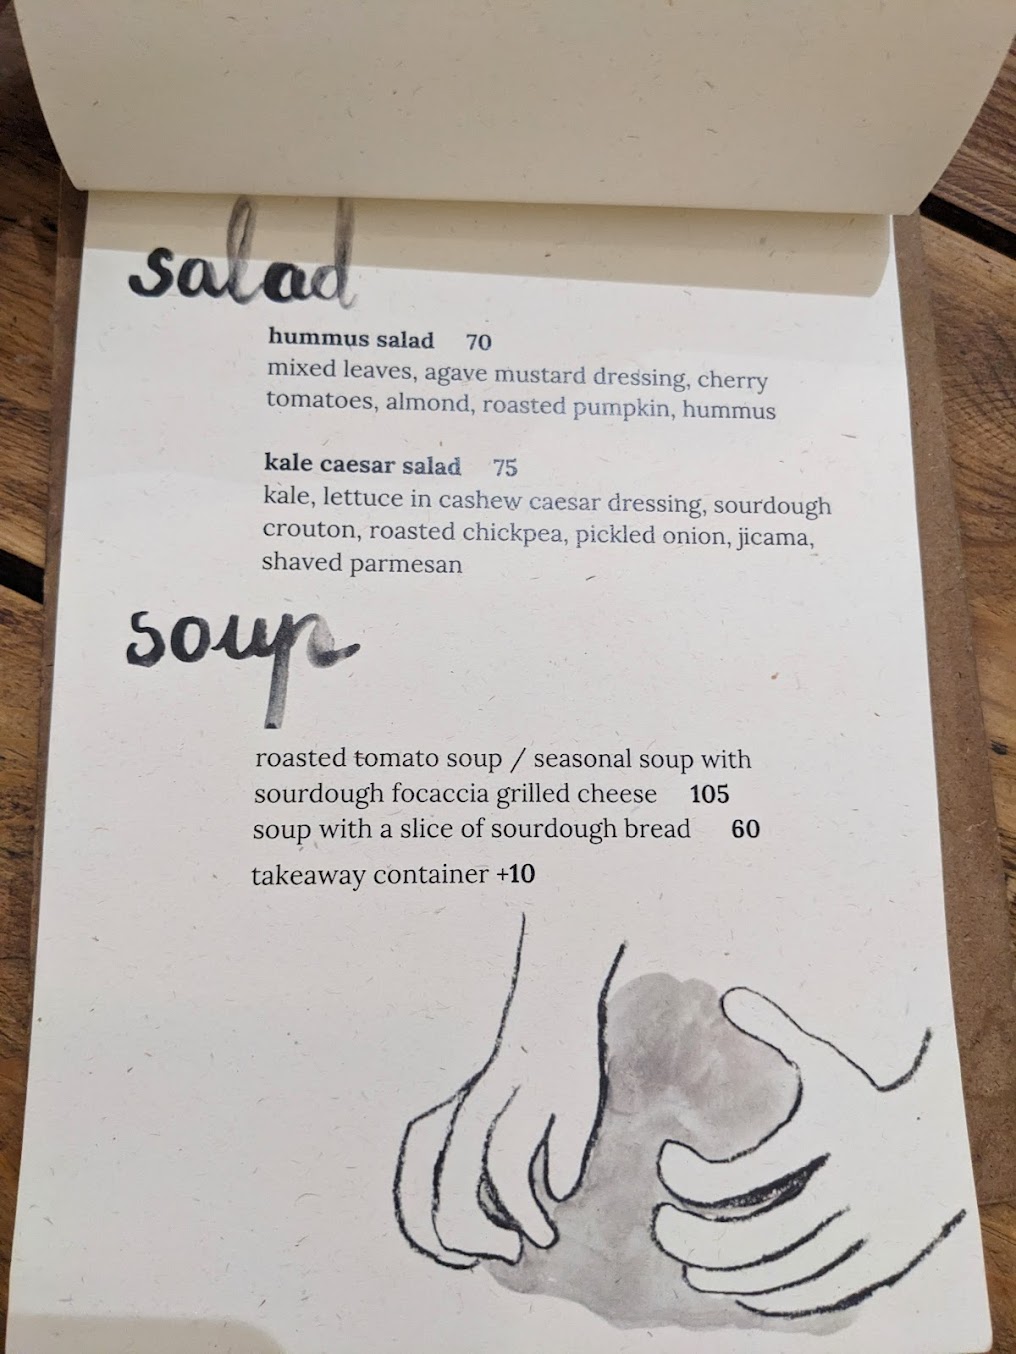 salad
hummus salad 70
mixed leaves, agave mustard dressing, cherry
tomatoes, almond, roasted pumpkin, hummus
kale caesar salad 75
kale, lettuce in cashew caesar dressing, sourdough
crouton, roasted chickpea, pickled onion, jicama,
shaved parmesan
soup
roasted tomato soup / seasonal soup with
sourdough focaccia grilled cheese 105
soup with a slice of sourdough bread 60
takeaway container +10